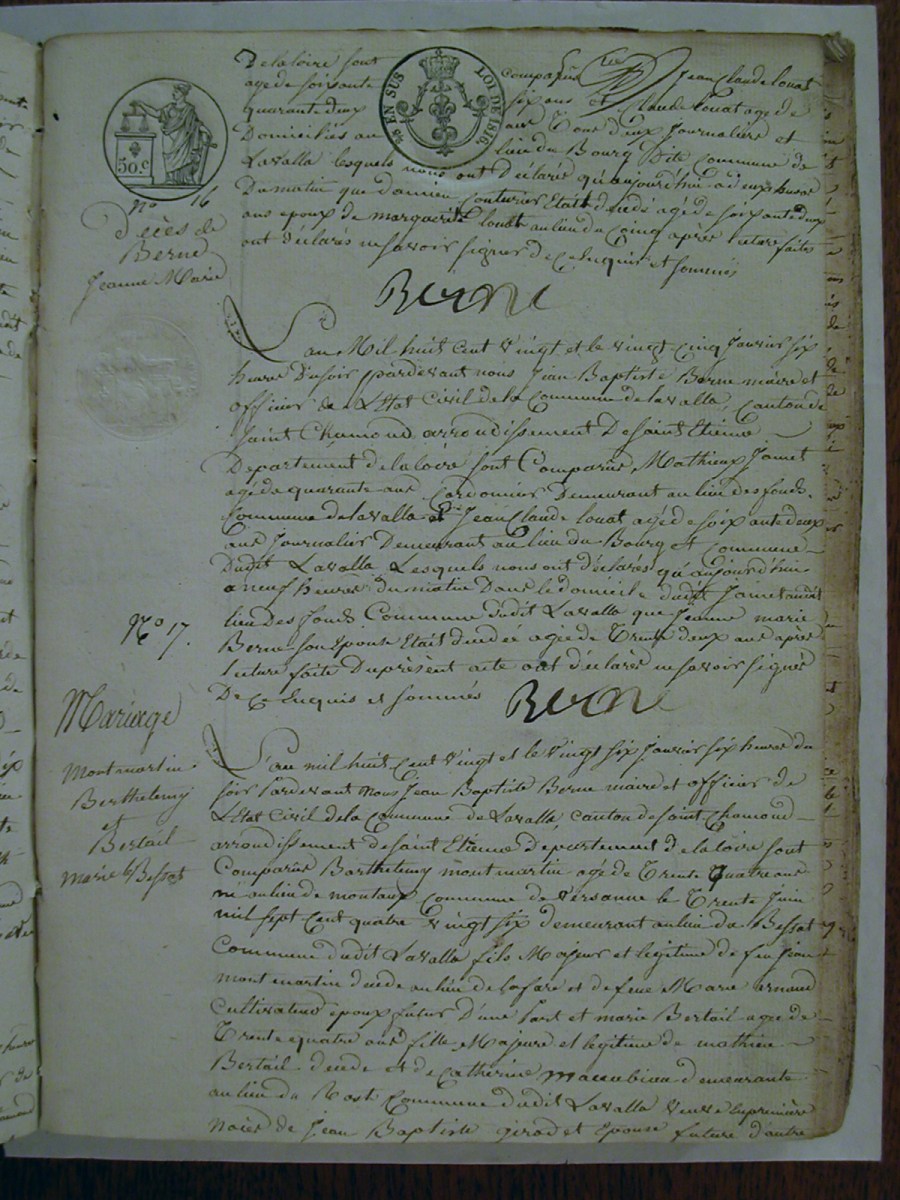 Delaloire sont comparus Jean Claude Louat
agé de soixante six ans et Claude Louat age de
quarante deux ans Tous deux Journaliers et
Domiciliés au lieu du Bourg Dite Commune de
Lavalla lesquels nous ont Déclarés qu'aujourd'hui a deux heures
Du matin que damien Couturier Etait décédé agé de soixante deux
ans epoux de marguerite Louat au lieu du Coing après lecture faite
ont Déclarés ne savoir signer de ce Enquis et sommés
Berne
25 EN SUS LOI DE 1816.
50.c
n.o 16
Décès de
Berne
Jeanne Marie
L'an Mil huit cent Vingt et le vingt cinq Janvier six
heures Du soir pardevant nous Jean Baptiste Berne maire et
officier de L'Etat Civil de la Commune de lavalla, canton de
saint Chamond arrondissement De saint Etienne
Departement de la loire sont Comparus Mathieux Jamet
agé de quarante ans Cordonnier Demeurant au lieu des fonds
Commune de lavalla et Jean Claude Louat agé de soixante deux
ans Journalier Demeurant au lieu du Bourg et Commune
Dudit Lavalla Lesquels nous ont déclarés qu'aujourd'hui
a neuf heures du matin Dans le domicile dudit Jamet audit
lieu Des fonds Commune dudit Lavalla que Jeanne marie
Berne son Epouse Etait décédée agée de Trente deux ans après
lecture faite Du présent acte ont déclarés ne savoir signer
De ce Enquis et sommés Berne
N.o 17.
Mariage
Montmartin
Berthelemy
et
Bertail
marie Bessat
L'an mil huit cent Vingt et le Vingt six Janvier six heures du
soir Pardevant Nous Jean Baptiste Berne maire et officier de
L'Etat Civil de la Commune de Lavalla, canton de saint Chamond
arrondissement de saint Etienne departement de la loire sont
Comparus Barthelemy montmartin agé de Trente quatre ans
né au lieu de montaux Commune de Versanne le Trente Juin
mil sept Cent quatre Vingt six demeurant au lieu du Bessat
Commune dudit Lavalla fils Majeur et legitime de feu Jean
montmartin décédé au lieu de lafare et de feue Marie
Cultivateur epoux futur D'une part et marie Bertail agée de
Trente quatre ans fille Majeure et legitime de mathieu
Bertail décédé et de Catherine demeurante
au lieu du Commune dudit Lavalla Veuve en première
noces de Jean Baptiste girodet Epouse future d'autre